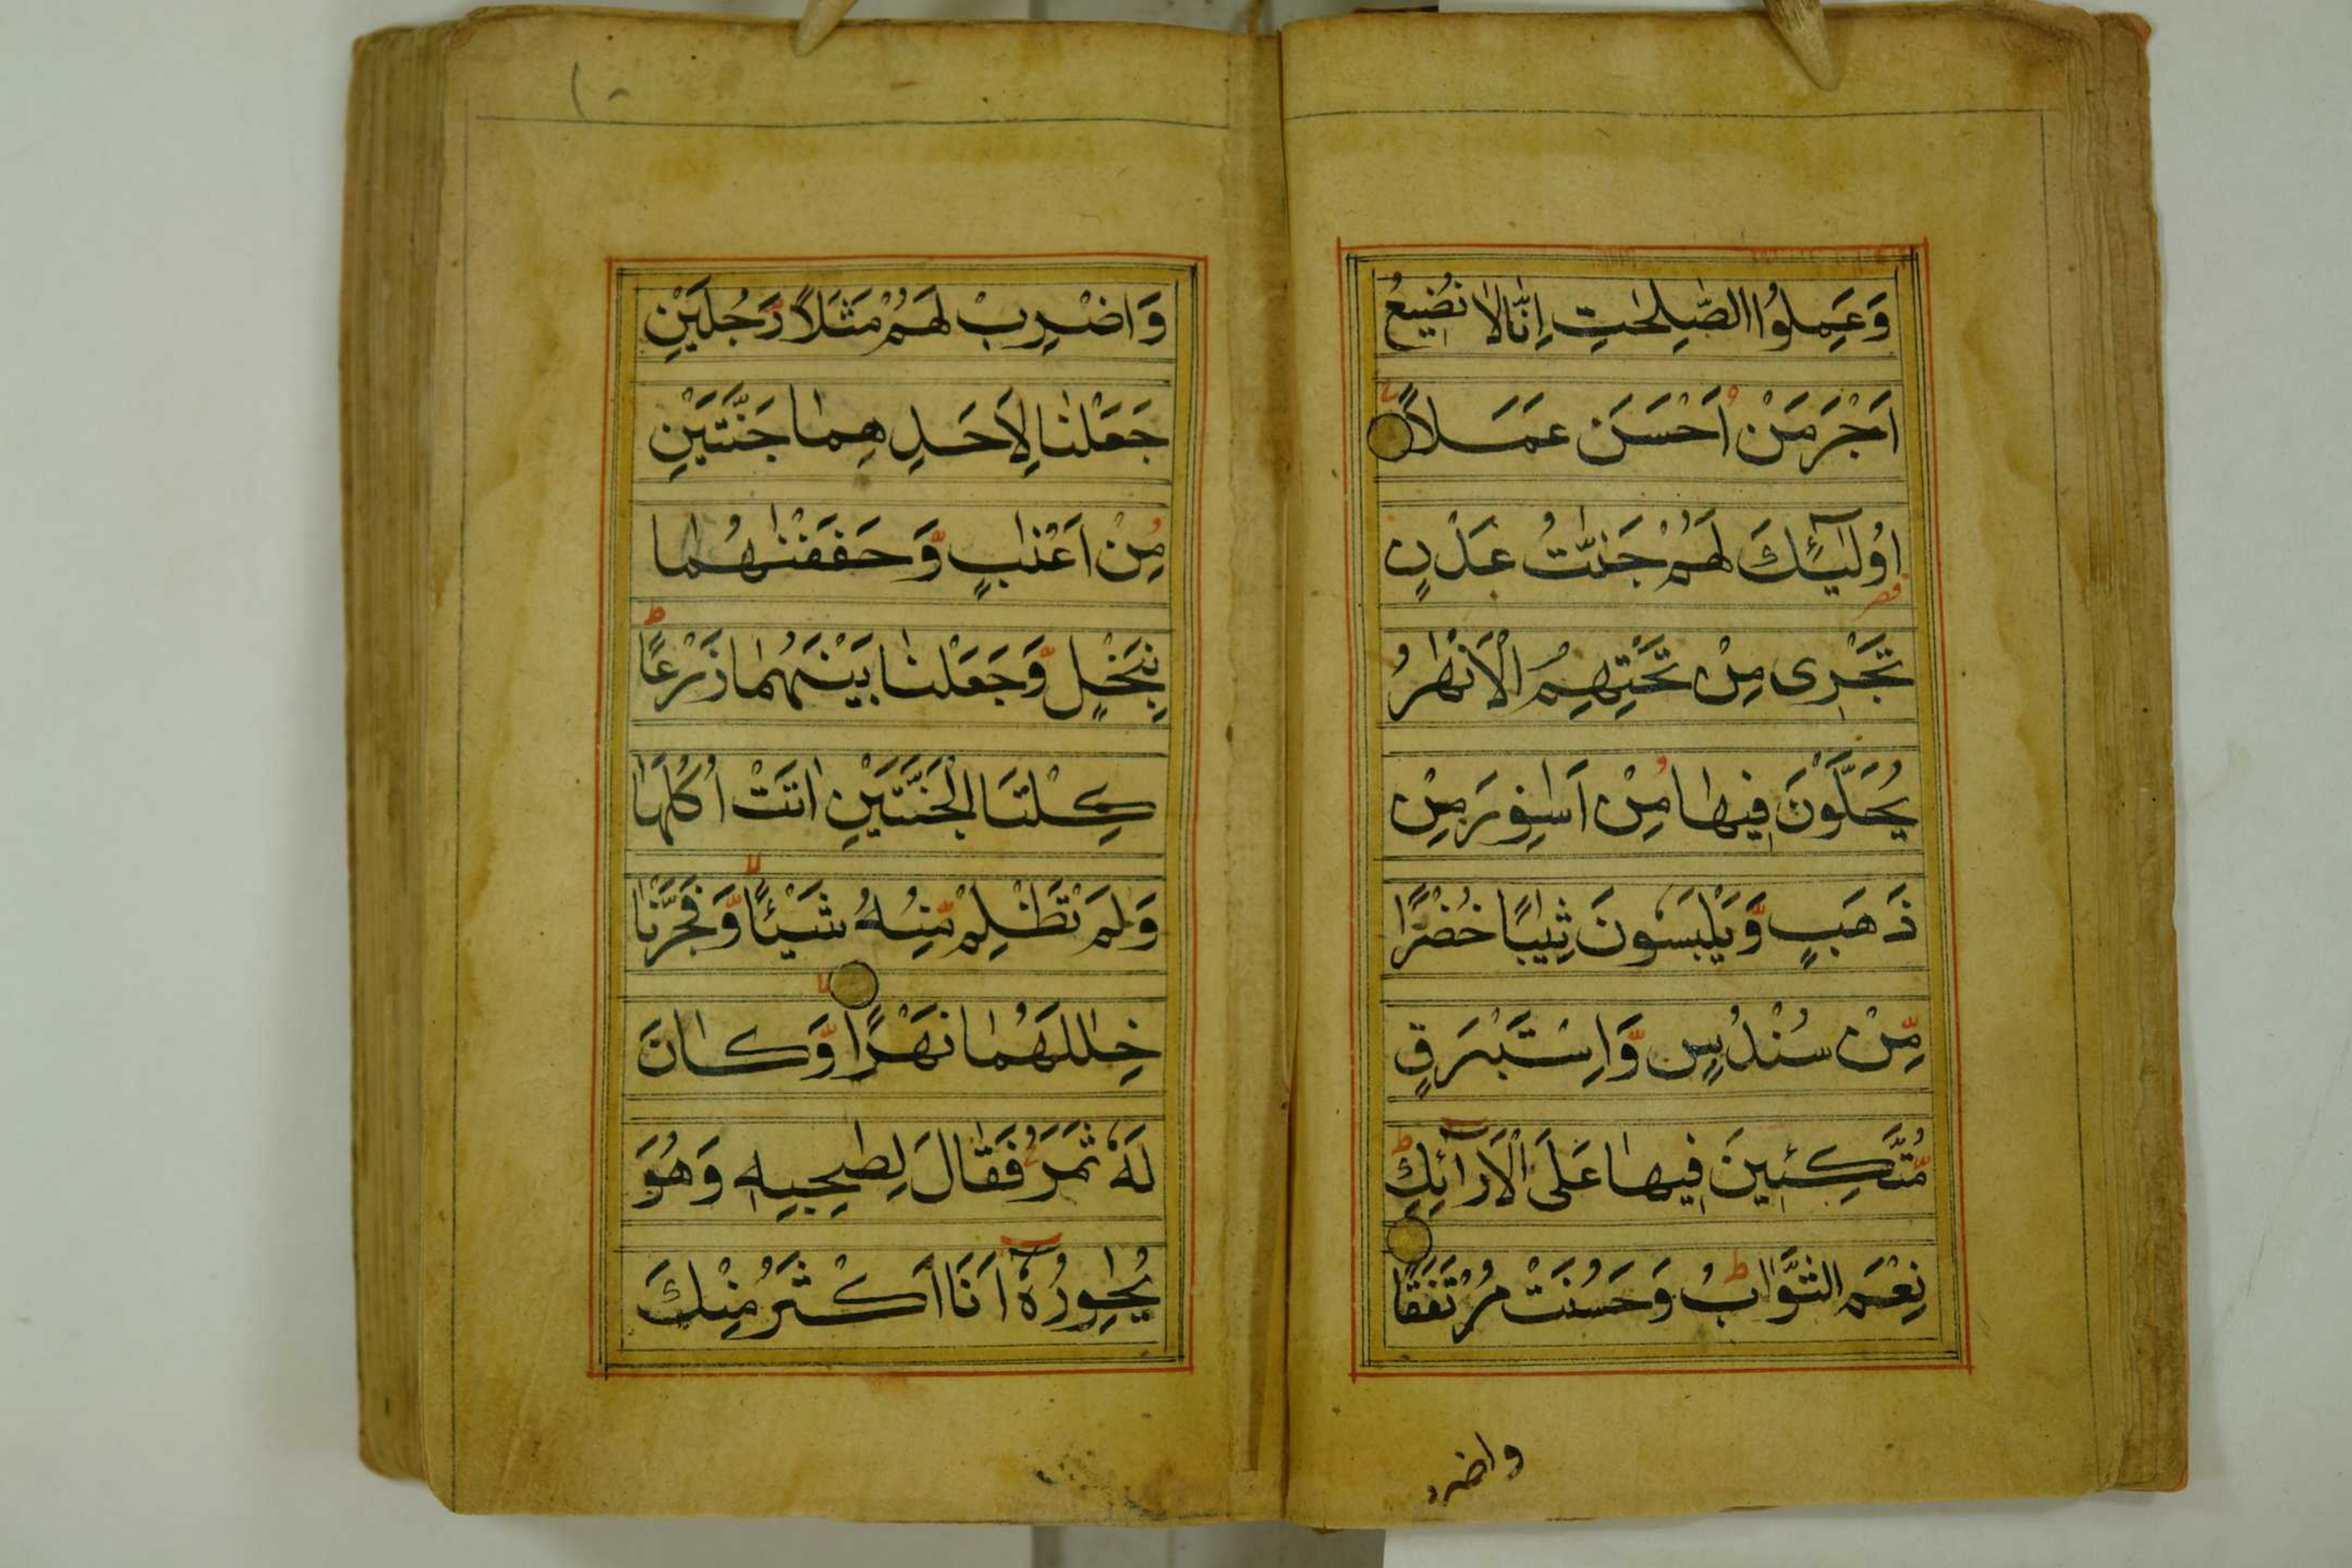 وَعَمِلُوا الصّٰلِحٰتِ اِنَّا لَا نُضِيعُ
اَجْرَ مَنْ اَحْسَنَ عَمَلًا
اُولٰٓئِكَ لَهُمْ جَنّٰتُ عَدْنٍ
تَجْرِى مِنْ تَحْتِهِمُ الْاَنْهٰرُ
يُحَلَّوْنَ فِيهَا مِنْ اَسَاوِرَ مِنْ
ذَهَبٍ وَّيَلْبَسُونَ ثِيَابًا خُضْرًا
مِّنْ سُنْدُسٍ وَّاِسْتَبْرَقٍ
مُّتَّكِـِٕينَ فِيهَا عَلَى الْاَرَآئِكِ ط
نِعْمَ الثَّوَابُ ط وَحَسُنَتْ مُرْتَفَقًا
واضر
وَاضْرِبْ لَهُمْ مَثَلًا رَّجُلَيْنِ
جَعَلْنَا لِاَحَدِهِمَا جَنَّتَيْنِ
مِنْ اَعْنَابٍ وَّحَفَفْنٰهُمَا
بِنَخْلٍ وَّجَعَلْنَا بَيْنَهُمَا زَرْعًا ط
كِلْتَا الْجَنَّتَيْنِ اٰتَتْ اُكُلَهَا
وَلَمْ تَظْلِمْ مِّنْهُ شَيْـًٔا لا وَّفَجَّرْنَا
خِلٰلَهُمَا نَهَرًا لا وَّكَانَ
لَهٗ ثَمَرٌ فَقَالَ لِصَاحِبِهٖ وَهُوَ
يُحَاوِرُهٗٓ اَنَا اَكْثَرُ مِنْكَ